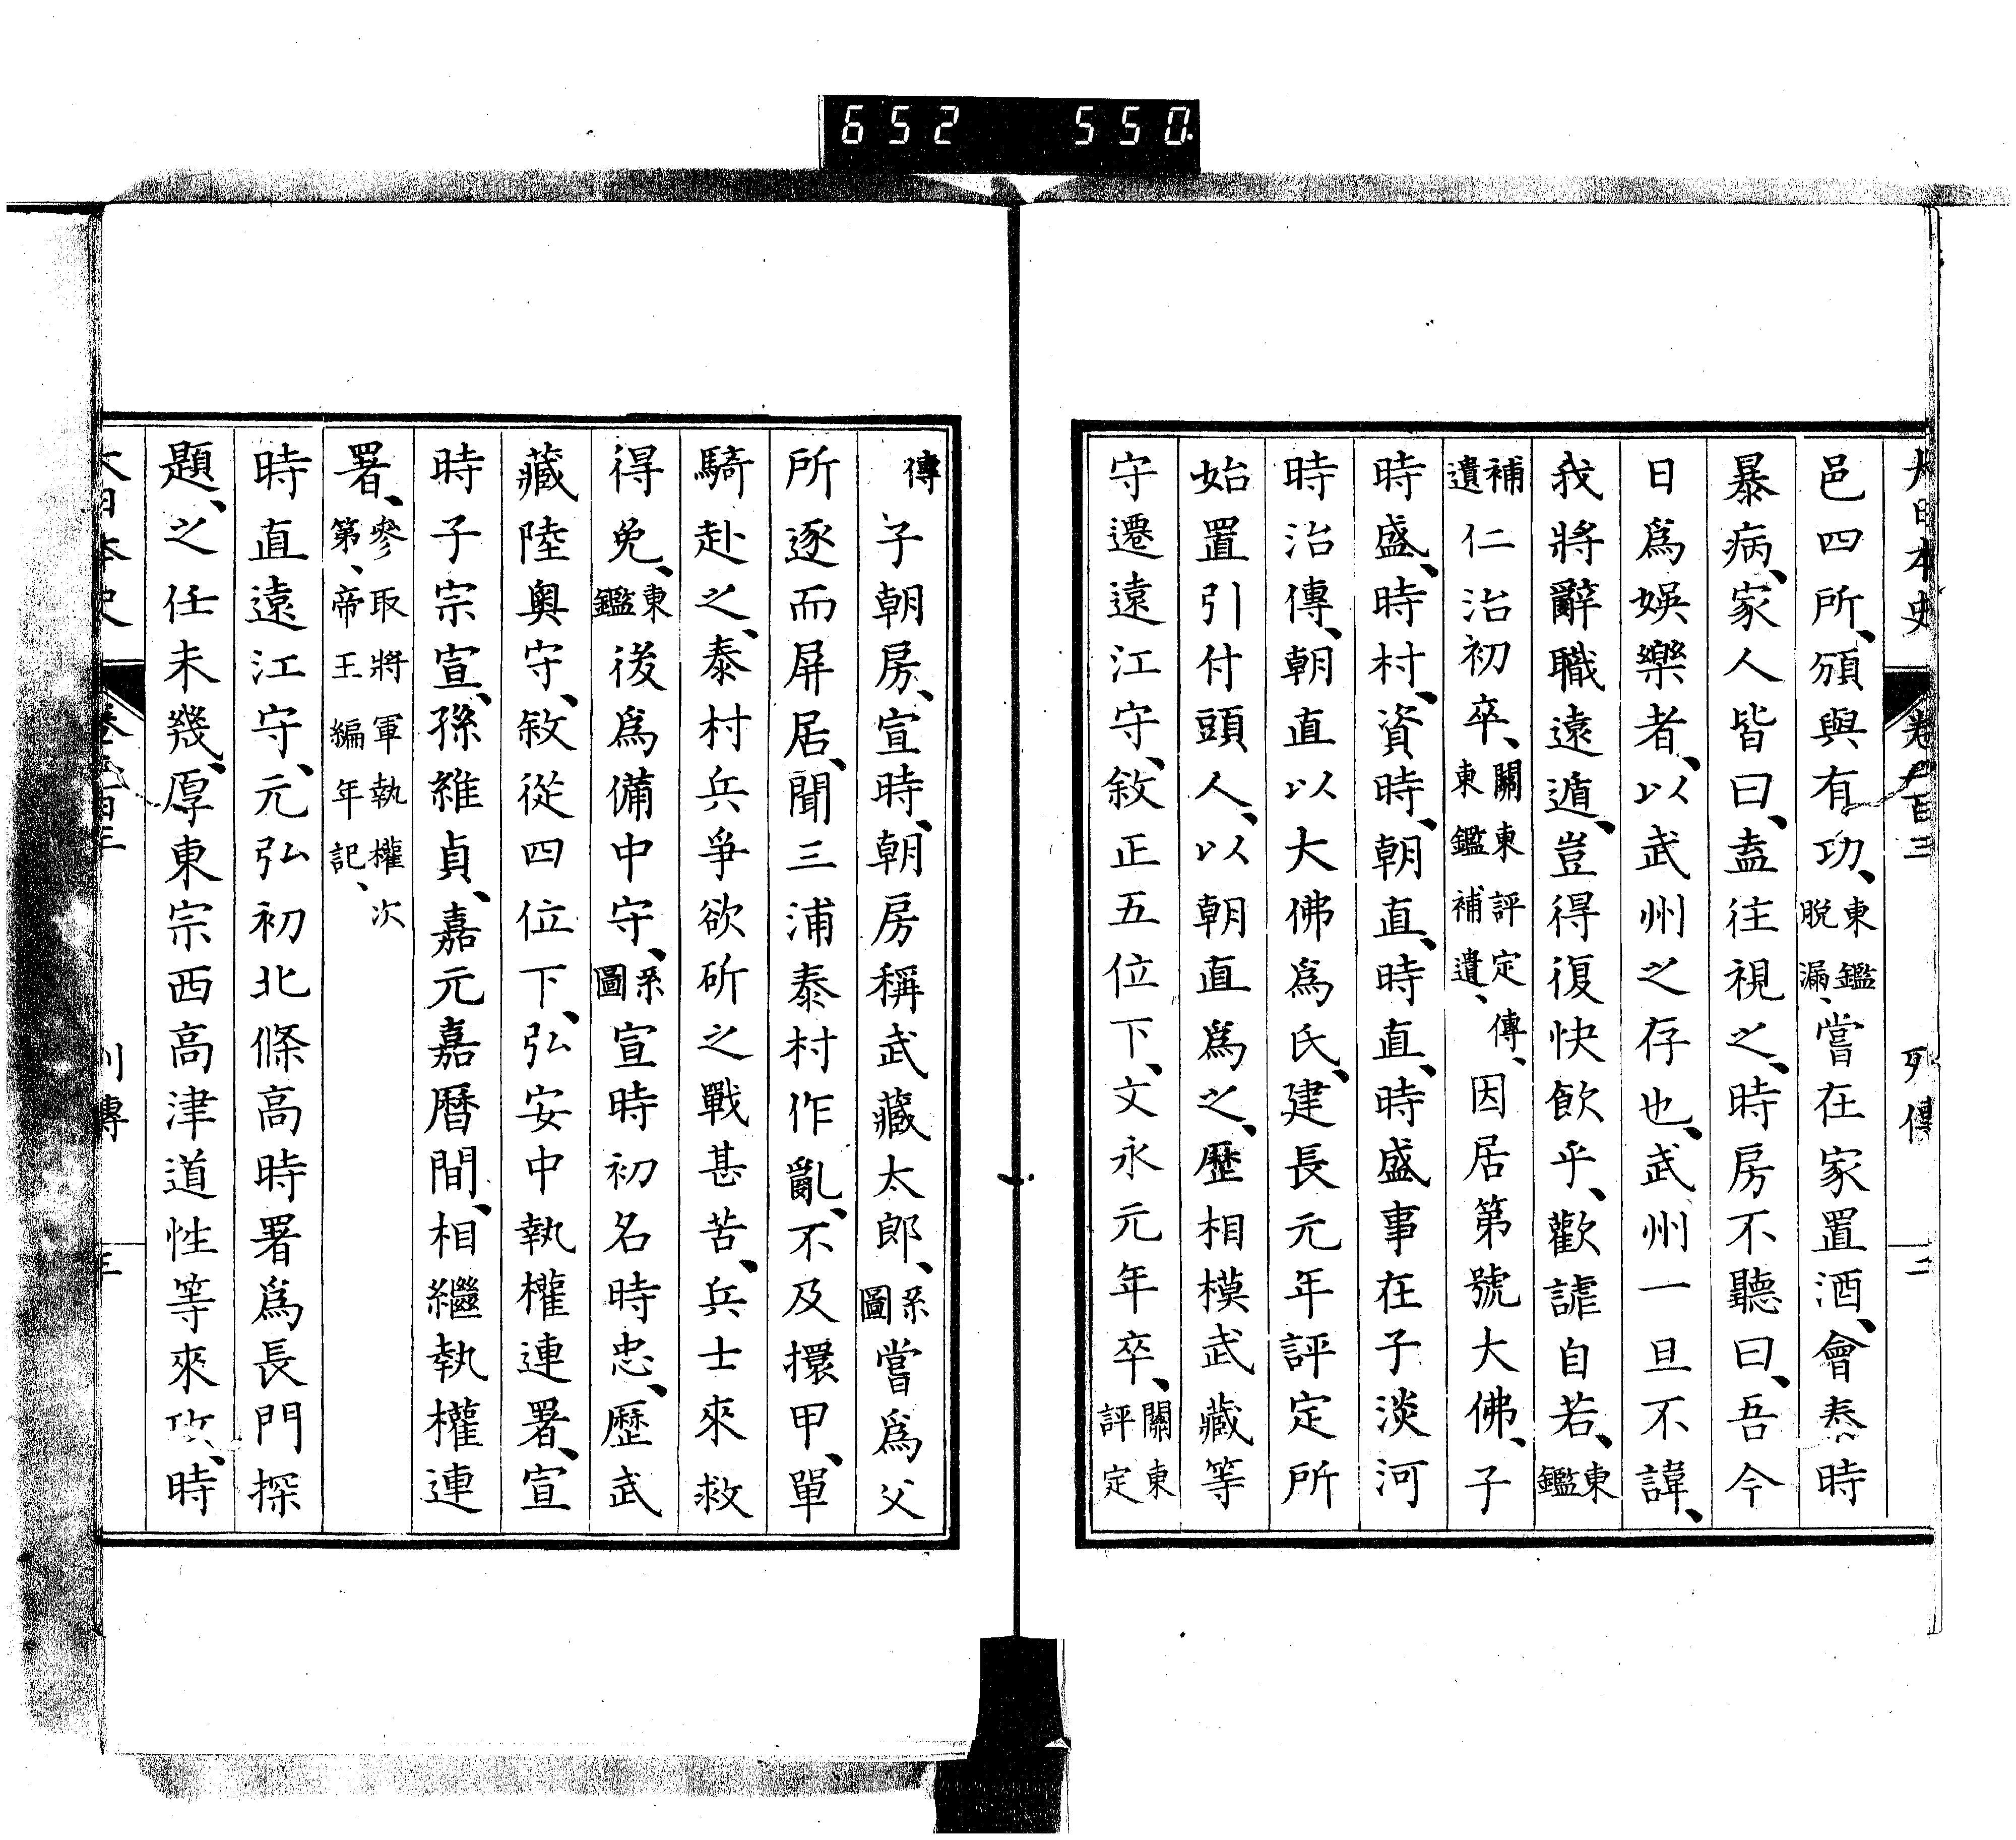 652 550
大日本史 卷二百三 列傳 二
邑四所、頒與有功、東鑑脫漏、嘗在家置酒、會泰時
暴病、家人皆曰、盍往視之、時房不聽曰、吾今
日爲娛樂者、以武州之存也、武州一旦不諱、
我將辭職遠遁、豈得復快飮乎、歡謔自若、東鑑
補遺仁治初卒、關東評定傳、東鑑補遺、因居第號大佛、子
時盛、時村、資時、朝直、時直、時盛事在子淡河
時治傳、朝直以大佛爲氏、建長元年評定所
始置引付頭人、以朝直爲之、歷相模武藏等
守遷遠江守、敘正五位下、文永元年卒、關東評定
傳子朝房、宣時、朝房稱武藏太郎、系圖嘗爲父
所逐而屏居、聞三浦泰村作亂、不及擐甲、單
騎赴之、泰村兵爭欲斫之戰甚苦、兵士來救
得免、東鑑後爲備中守、系圖宣時初名時忠、歷武
藏陸奧守、敘從四位下、弘安中執權連署、宣
時子宗宣、孫維貞、嘉元嘉曆間、相繼執權連
署、參取將軍執權次第、帝王編年記、
時直遠江守、元弘初北條高時署爲長門探
題、之任未幾、厚東宗西高津道性等來攻、時
大日本史 卷二百三 列傳 三